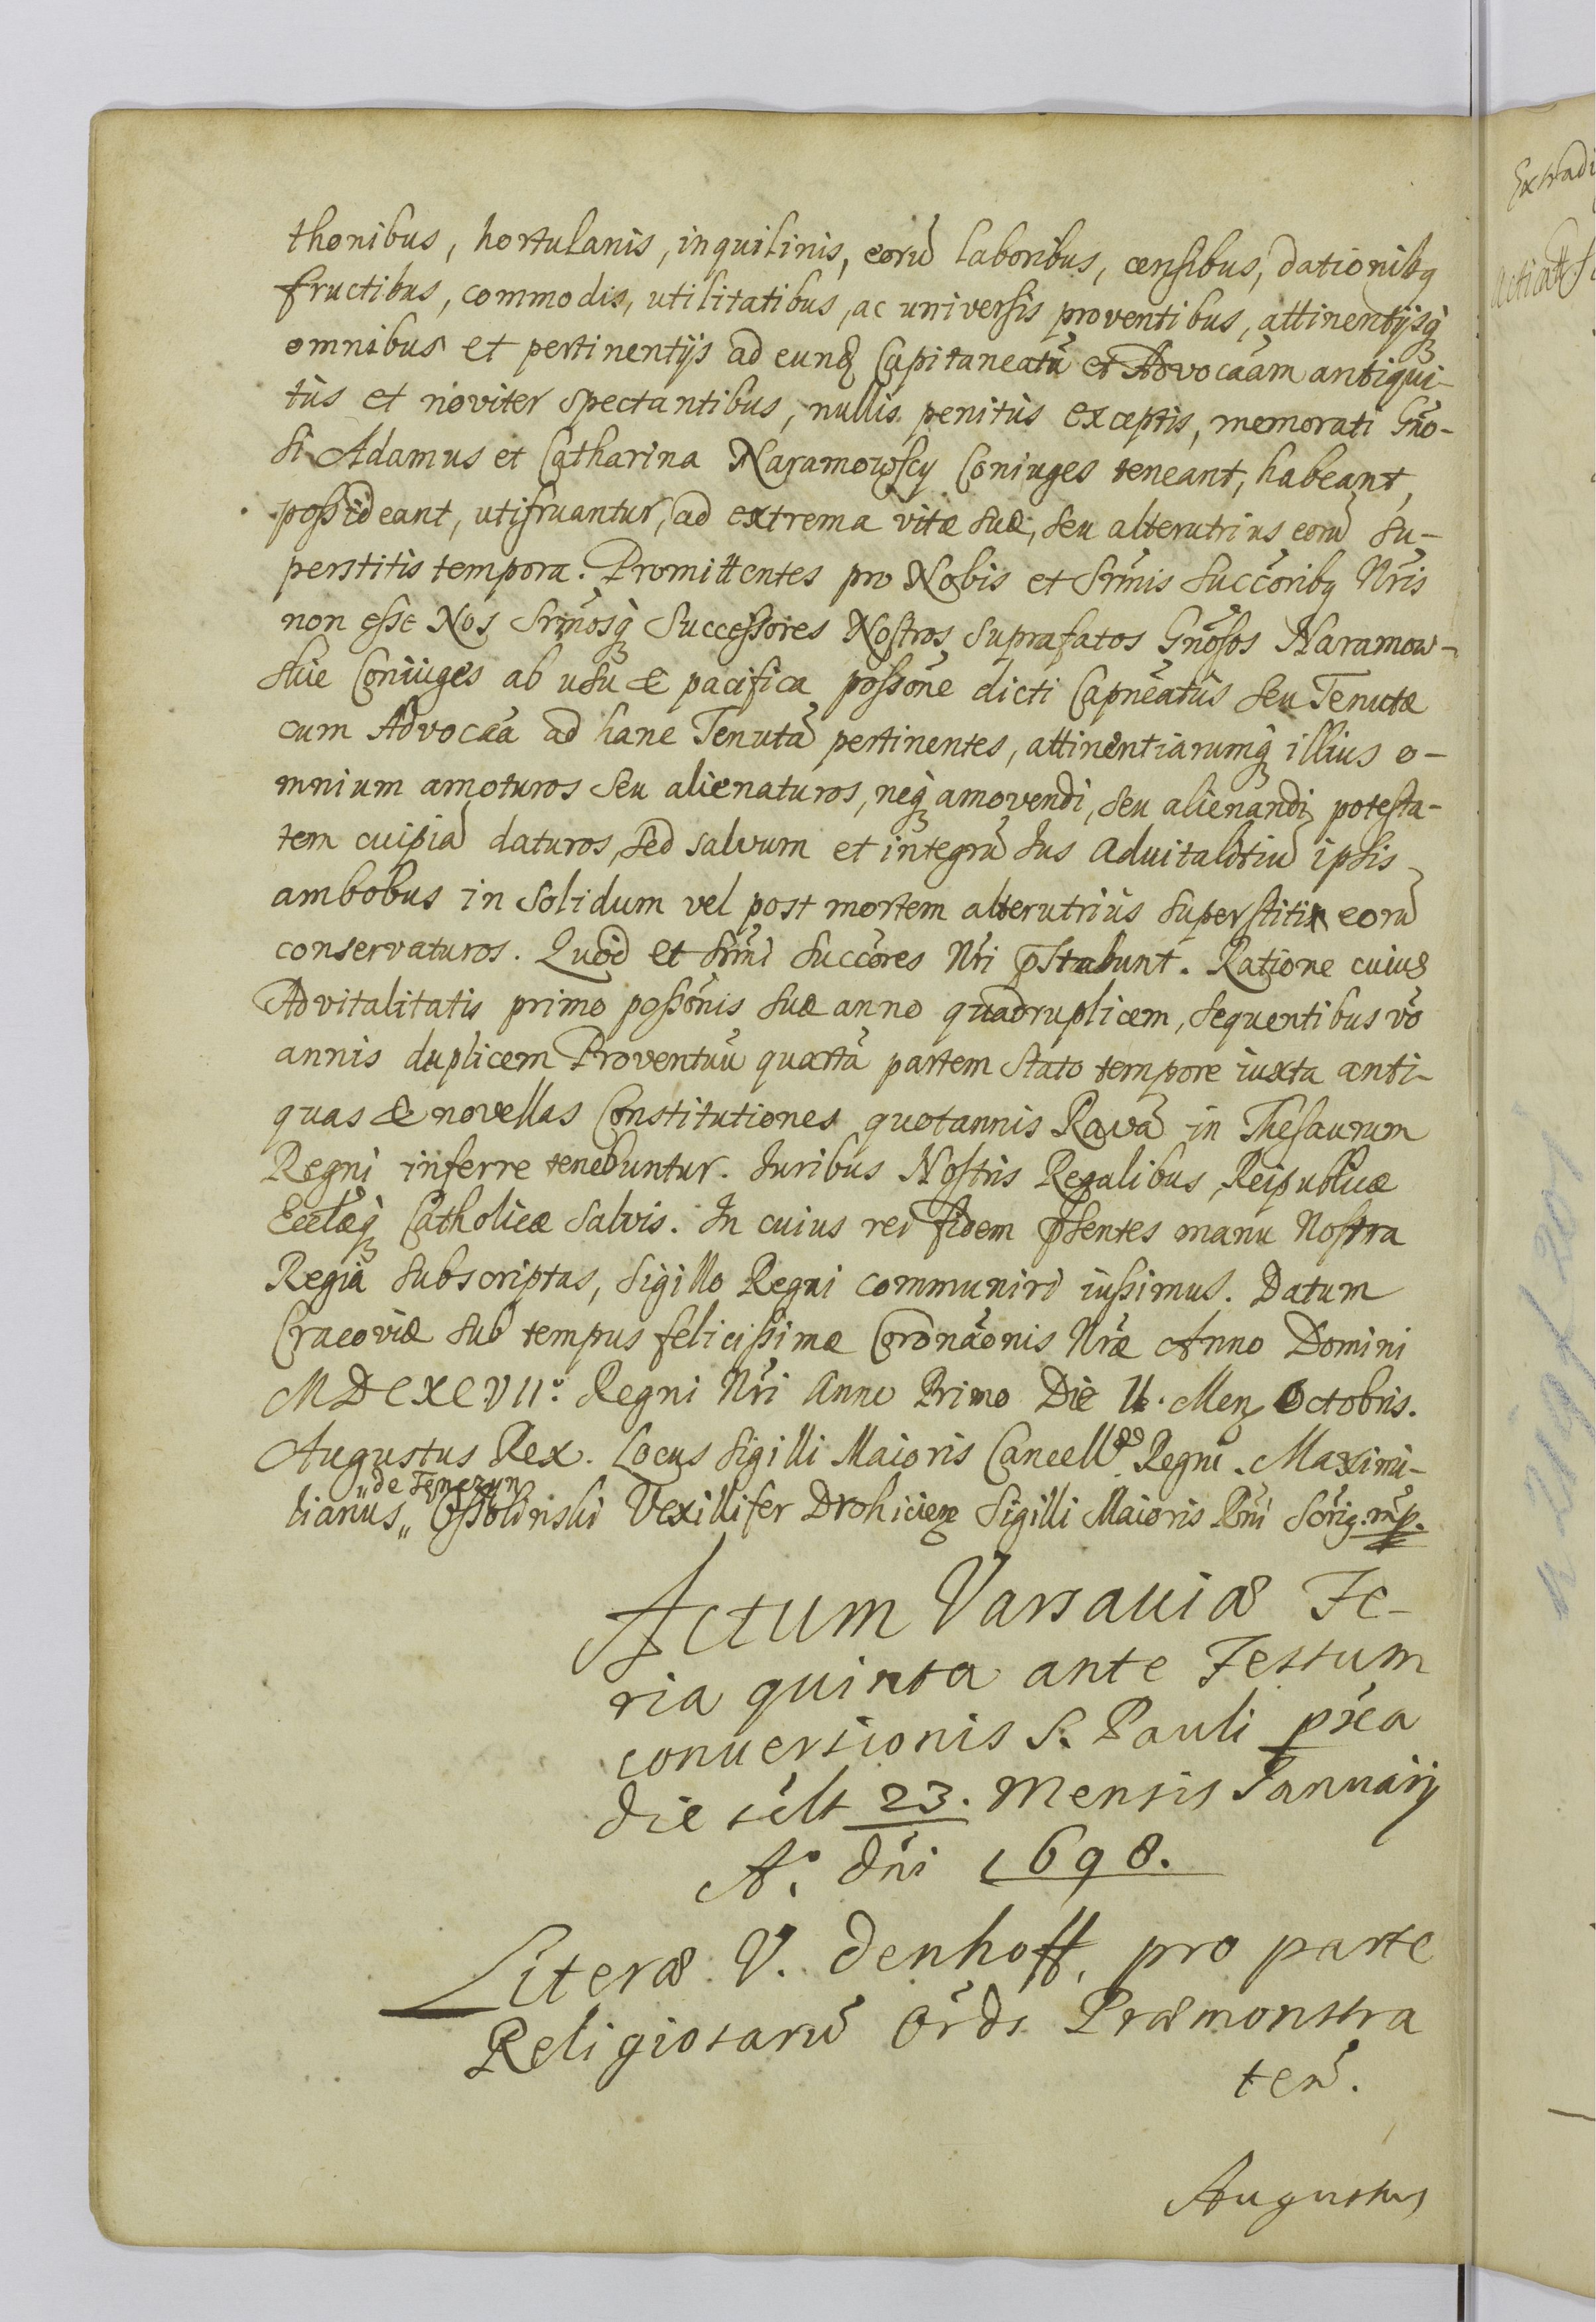 thonibus, hortulanis, inquilinis, eorū laboribus, censibus, dationibq
fructibus, commodis, utilitatibus, ac universis proventibus, attinentijsq̃
omnibus et pertinentijs ad eunđ Capitaneatū et Advocãam antiqui-
tùs et noviter spectantibus, nullis penitùs exceptis, memorati Gño-
si Adamus et Catharina Naramowscy Coniuges teneant, habeant,
possideant, utifruantur, ad extrema vitæ suæ, seu alterutrius eorū su-
perstitis tempora. Promittentes pro Nobis et Srm̃is Succõribq Nr̃is
non esse Nos Srm̃osq̃ Successores Nostros suprafatos Gñosos Naramow-
skie Coniuges ab usu & pacifica possõne dicti Capñeatûs seu Tenutæ
cum Advocãa ad hanc Tenutã pertinentes, attinentiarumq̃ illius o-
mnium amoturos seu alienaturos, neq̃ amovendi, seu alienandi potesta-
tem cuipiã daturos, sed salvum et integrū Ius Advitalitiū ipsis
ambobus in solidum vel post mortem alterutrius superstiti eorū
conservaturos. Quod et Srm̃i Succõres Nr̃i p̃stabunt. Ratione cuius
Advitalitatis primo possõnis suæ anno quadruplicem, sequentibus võ
annis duplicem Proventuū quartã partem stato tempore iuxta anti-
quas & novellas Constitutiones quotannis Ravã in Thesaurum
Regni inferre tenebuntur. Iuribus Nostris Regalibus, Reipublicæ
Eccłæq̃ Catholicæ salvis. In cuius rei fidem p̃sentes manu Nostra
Regiã subscriptas, sigillo Regni communiri iussimus. Datum
Cracoviæ sub tempus felicissimæ Coronãonis Nr̃æ Anno Domini
MDCXCVII°. Regni Nr̃i Anno Primo Die Menς Octobris.
Augustus Rex. Locus Sigilli Maioris Cancell Regni. Maximi-
„de Tenczyn
lianus„ Ossolinski Vexillifer Drohicień Sigilli Maioris Rñi Scr̃ig. mp.
Actum Varsaviæ Fe-
ria quinta ante Festum
conversionis S. Pauli pr̃a
die scilt 23. Mensis Ianuarij
A°. dñi 1698.
Literæ V. denhoff, pro parte
Religiosarū Ords Præmonstra
ten̄.
Augustus